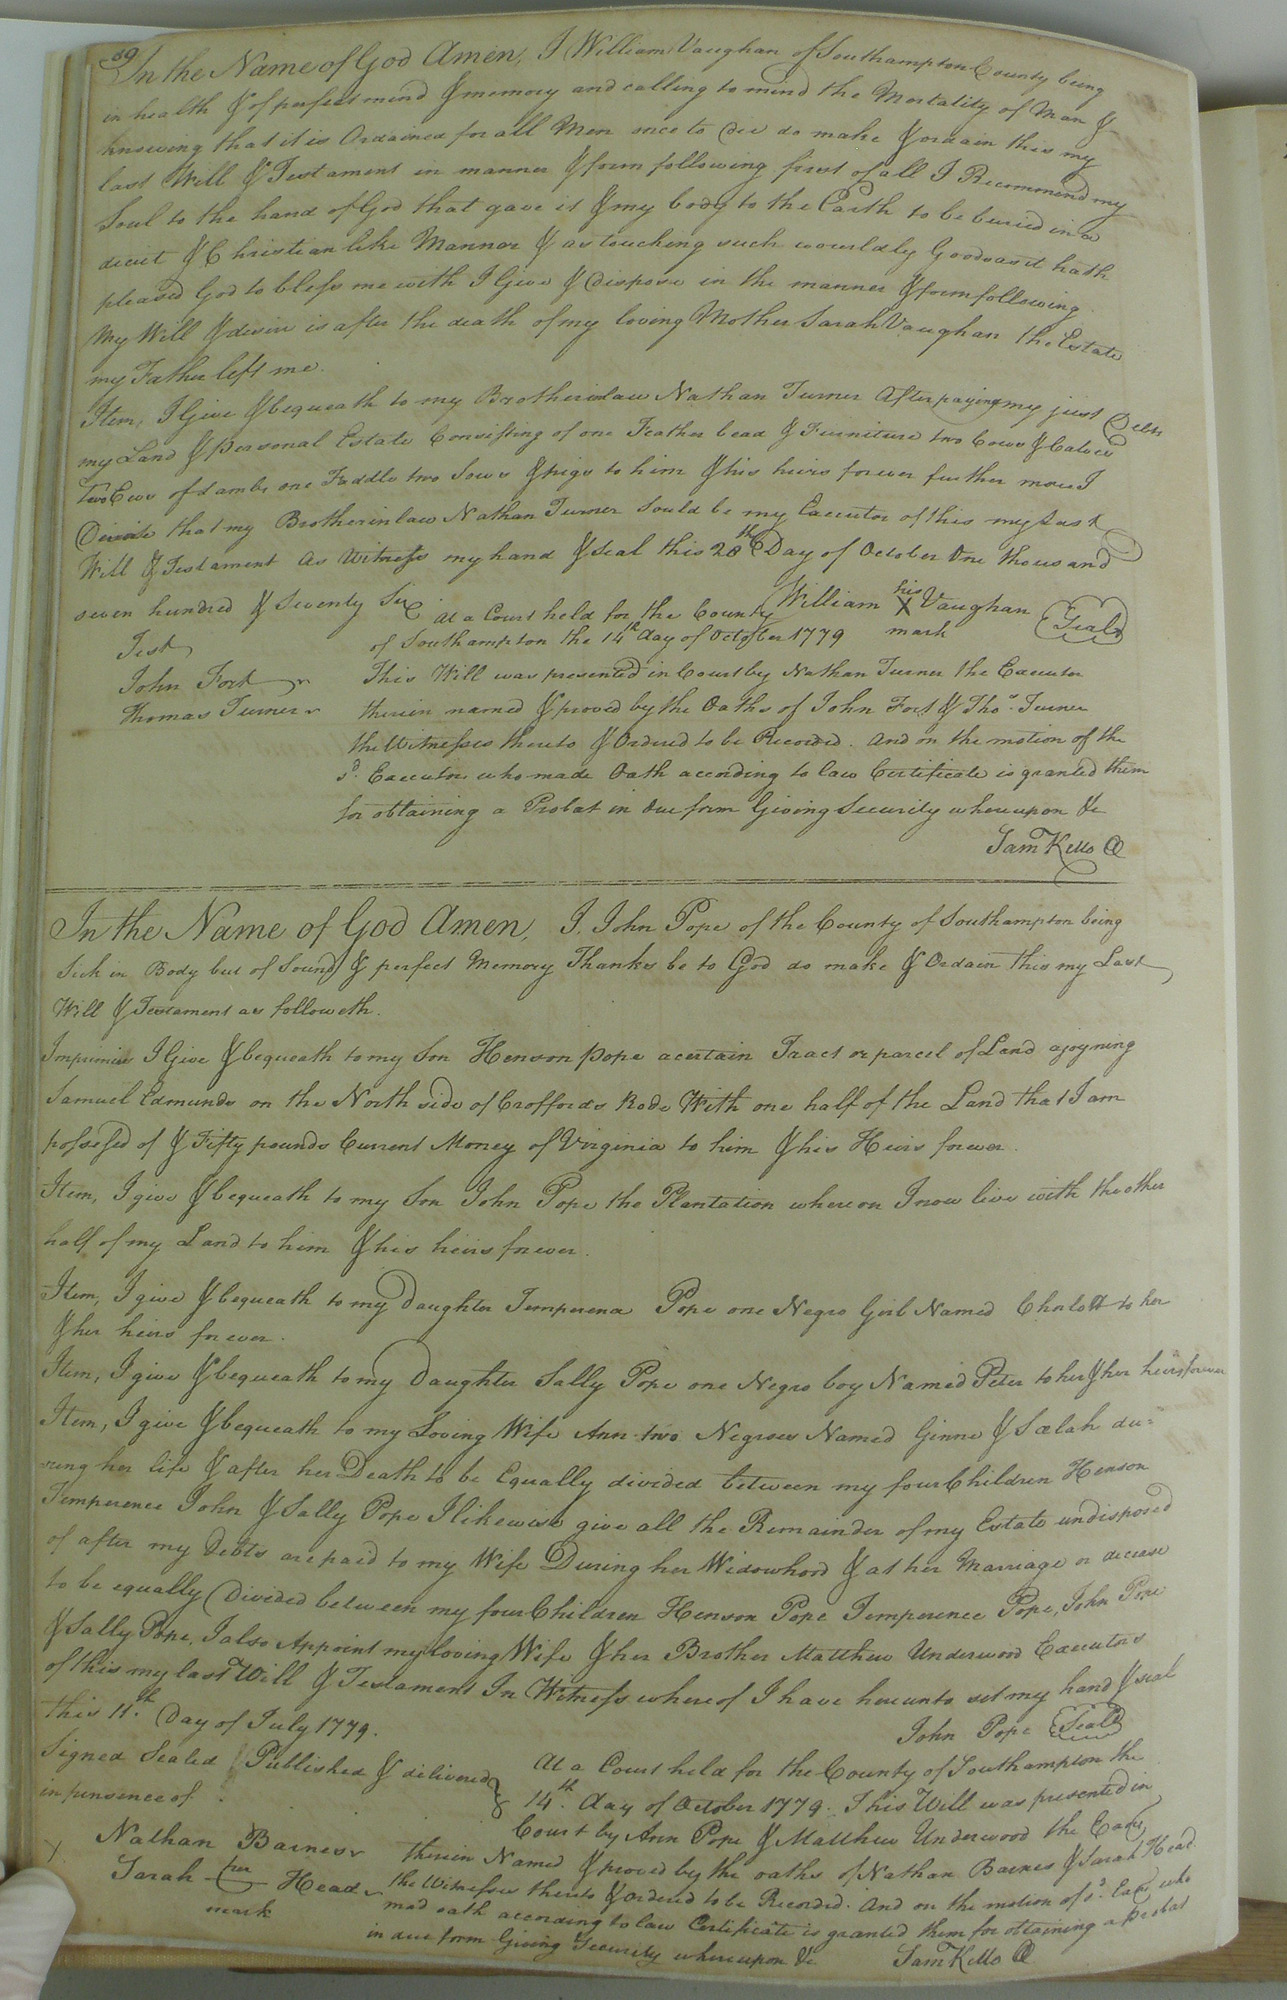 In the Name of God Amen, I William Vaughan of Southampton County being
in health & of perfect mind & memory and calling to mind the Mortality of Man &
knowing that it is Ordained for all Men once to die do make & ordain this my
last Will & Testament in manner & form following first of all I Recommend my
Soul to the hand of God that gave it & my body to the Earth to be buried in a
decit & Christian like Manner & as touching such wourldly Goods as it hath
pleased God to bless me with I Give & dispose in the manner & form following
My Will & desire is after the death of my loving Mother Sarah Vaughan the Estate
my Father left me.
Item, I Give & bequeath to my Brotherinlaw Nathan Turner After paying my just Debts
my Land & Personal Estate Consisting of one Feather bead & Furniture two Cows & Calves
Two Ews & Lambs one Saddle two Sows & pigs to him & his heirs forever further more I
Desire that my Brotherinlaw Nathan Turner Sould be my Executor of this my Last
Will & Testament As Witness my hand & Seal this 28th Day of October One thousand
seven hundred & Seventy Six
William his X mark Vaughan Seal
Test
John Fort
Thomas Turner
At a Court held for the County
of Southampton the 14th day of October 1779
This Will was presented in Court by Nathan Turner the Executor
therein named & proved by the Oaths of John Fort & Thos. Turner
the Witnesses thereto & Ordered to be Recorded. And on the motion of the
sd. Executor who made Oath according to law Certificate is granted them
for obtaining a Probat in due form Giving Security whereupon &c
Saml Kello
In the Name of God Amen, I. John Pope of the County of Southampton being
Sick in Body but of Sound & perfect Memory Thanks be to God do make & Ordain this my Last
Will & Testament as followeth.
Imprimis I Give & bequeath to my Son Henson Pope a certain Tract or parcel of Land ajoyning
Samuel Edmunds on the North side of Croffords Rode With one half of the Land that I am
possessed of & Fifty pounds Current Money of Virginia to him & his Heirs forever.
Item, I give & bequeath to my Son John Pope the Plantation whereon I now live with the other
half of my Land to him & his heirs forever.
Item, I give & bequeath to my Daughter Temperena Pope one Negro Girl Named Charlott to her
& her heirs forever.
Item, I give & bequeath to my Daughter Sally Pope one Negro boy Named Peter to her & her heirs forever
Item, I give & bequeath to my Loving Wife Ann two Negroes Named Ginne & Selah du=
ring her life & after her Death to be Equally divided between my four Children Henson
Temperence John & Sally Pope I likewise give all the Remainder of my Estate undisposed
of after my Debts are paid to my Wife During her Widowhood & at her Marriage or decease
to be equally Divided between my four Children Henson Pope Temperence Pope, John Pope
& Sally Pope, I also Appoint my loving Wife & her Brother Matthew Underwood Executors
of this my last Will & Testament In Witness whereof I have hereunto set my hand & seal
this 11th. Day of July 1779.
John Pope Seal
Signed Sealed Published & delivered
in pursence of
Nathan Barnes
Sarah her mark Head
At a Court held for the County of Southampton the
14th. day of October 1779. This Will was presented in
Court by Ann Pope & Matthew Underwood the Exors
therein Named & proved by the oaths of Nathan Barnes & Sarah Head
the Witnesses thereto & ordered to be Recorded. And on the motion of sd. Exors who
mad oath according to law Certificate is granted them for obtaining a Probat
in due form Giving Security whereupon &c
Saml Kello